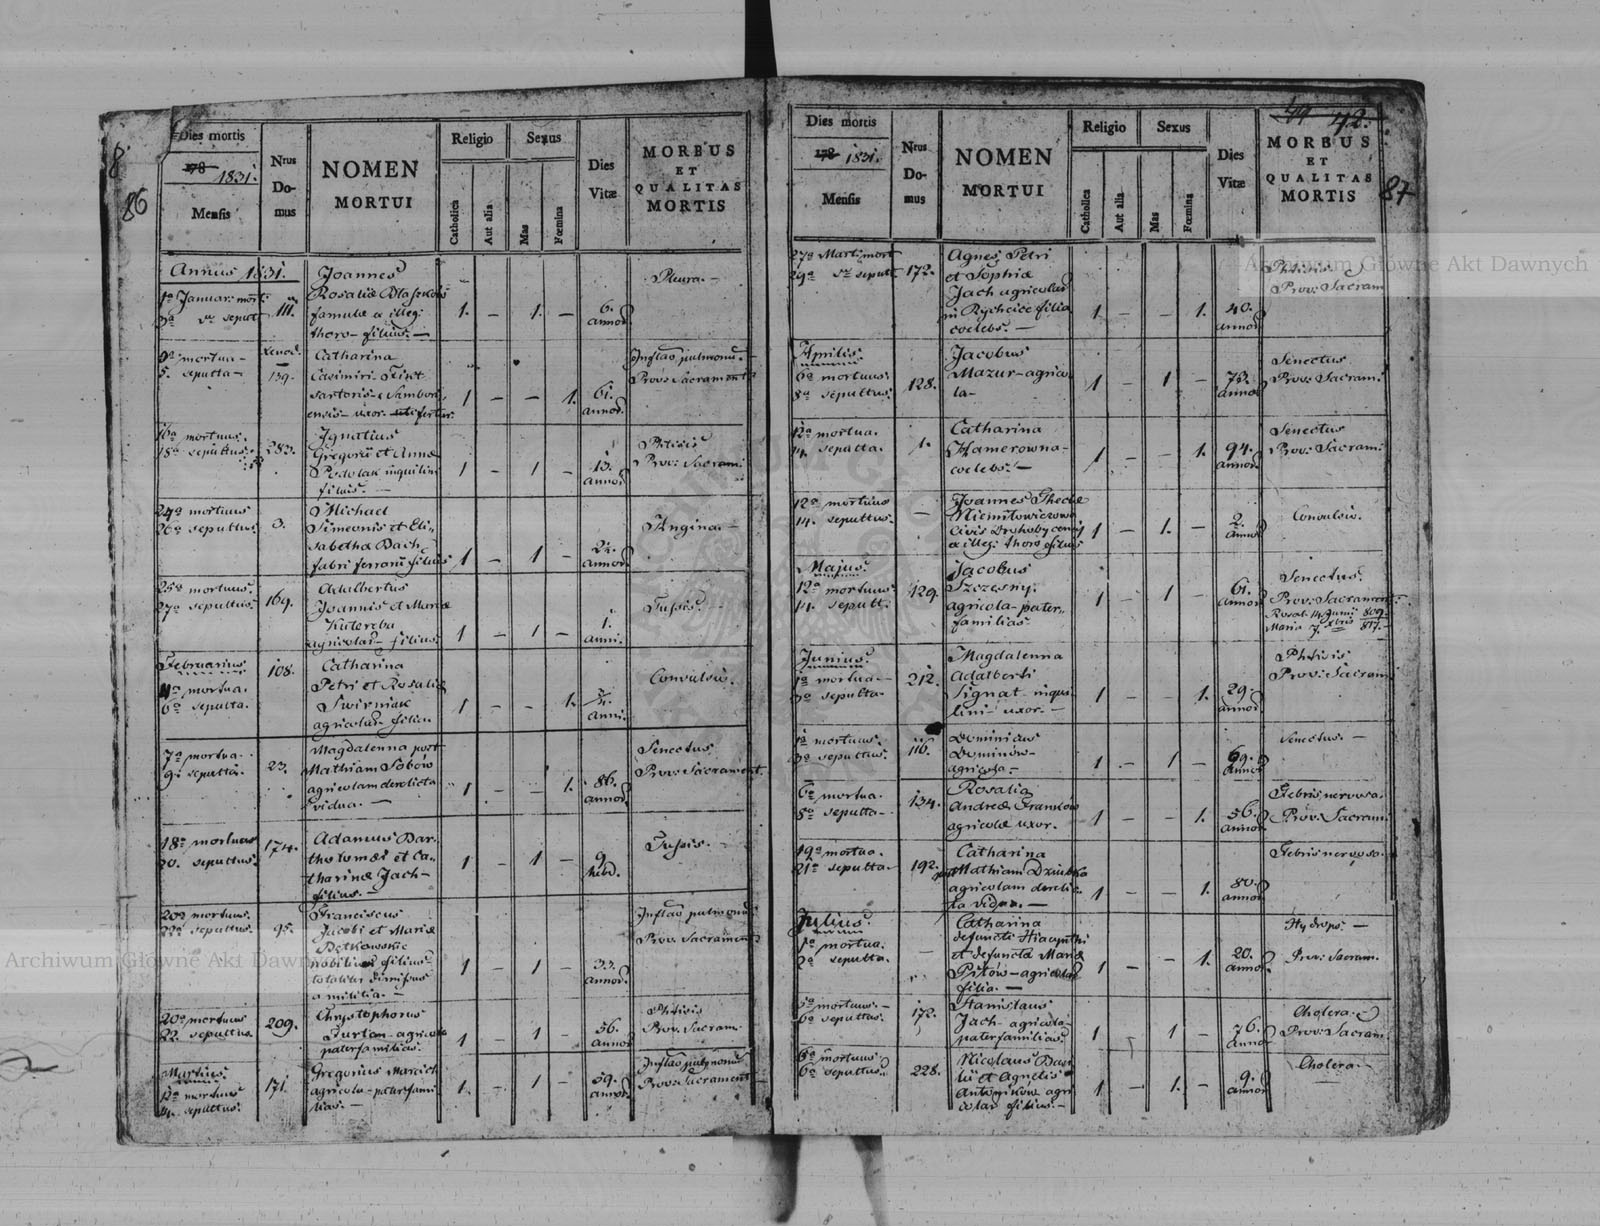 8.
86
Dies mortis
178 1831.
Mensis
Nrus
Do-
mus
NOMEN
MORTUI
Religio
Catholica
Aut alia
Sexus
Mas
Fœmina
Dies
Vitæ
MORBUS
ET
QUALITAS
MORTIS
Annus 1831.
1a Januar: mort:
3a sepult
111.
Joannes
Rosaliæ
famulæ ex illeg:
thoro filius. —
1. — 1. —
6.
annor.
Pleura. —
mortua —
5. sepulta —
139.
Catharina
Casimiri
sartoris
ensis uxor
1 — — 1.
61.
annor.
Inflãõ pulmonũ. —
Prov: Sacrament:
16a mortuus.
18a sepultus.
283.
Ignatius
Gregorii et Annæ
Podolak inquilini
filius. —
1 — 1 —
13.
annor.
Phtisis
Prov: Sacram:
24a mortuus
26a sepultus.
3.
Michael
Simeonis et Eli-
sabethæ Dach
fabri ferrarii filius
1 — 1 —
annor.
Angina. —
25a mortuus.
27a sepultus.
169.
Adalbertus
Joannis et Mariæ
Kutereba
agricolar. filius.
1 — 1 —
1.
anni.
Tussis. —
Februarius
4a mortua.
6a sepulta.
108.
Catharina
Petri et Rosaliæ
Swirniak
agricolar. filia.
1 — — 1.
anni.
Convulsio.
7a mortua.
9a sepulta.
23.
Magdalenna post
Mathiam Sobow
agricolam derelicta
vidua. —
1 — — 1.
86.
annor.
Senectus
Prov: Sacrament.
18a mortuus
20. sepultus.
174.
Adamus Bar-
tholomæi et Ca-
tharinæ Jach —
filius.
1 — 1 —
9.
hebd.
Tussis. —
20a mortuus.
22a sepultus.
95.
Franciscus
Jacobi et Mariæ
Bętkowskie
nobilium filius
totaliter dimissus
a militia. —
1 — 1 —
33.
annor.
Inflãõ pulmonũ
Prov: Sacrament:
20a mortuus
22. sepultus
209.
Chrystophorus
Furtan agricola
paterfamilias.
1 — 1 —
56.
annor
Phtisis
Prov: Sacram.
Martius.
12a mortuus
14. sepultus.
171.
Gregorius Marcich
agricola paterfami
lias. —
1. — 1 —
59.
annor.
Inflãõ pulmonũ
Prov: Sacrament
44 42.
87
Dies mortis
178 1831.
Mensis
Nrus
Do-
mus
NOMEN
MORTUI
Religio
Catholica
Aut alia
Sexus
Mas
Fœmina
Dies
Vitæ
MORBUS
ET
QUALITAS
MORTIS
27a Marti: mort
29a sepult
172.
Agnes Petri
et Sophiæ
Jach agricolar
in Rychcice filia
coelebs. —
1 — — 1.
40.
annor
Phtisis
Prov: Sacram
Aprilis
6a mortuus.
8a sepultus.
128.
Jacobus
Mazur — agrico-
la —
1 — 1 —
73.
annor
Senectus
Prov: Sacram:
12a mortua.
14. sepulta.
1.
Catharina
Hamerowna —
coelebs. —
1 — — 1.
94.
annor
Senectus
Prov: Sacram:
12a mortuus
14. sepultus.
—
Joannes
civis
ex illeg: thoro filius
1 — 1. —
2.
annor
Convulsio.
Majus.
12a mortuus
14. sepult.
129.
Jacobus
Szczesny.
agricola — pater-
familias
1 — 1 —
61.
annor
Senectus.
Prov: Sacrament:
Rosal. 14 Junii 809.
Maria 7. xbris 817. —
Junius.
1a mortua —
3a sepulta
212.
Magdalenna
Adalberti
Signat inqui-
lini uxor. —
1 — — 1.
29.
annor
Phtisis
Prov: Sacram
1a mortuus.
3a sepultus.
116.
Dominicus
Dominów —
agricola. —
1 — 1 —
69.
annor
Senectus. —
6a mortua.
8a sepulta —
134.
Rosalia
Andreæ Franków
agricolæ uxor.
1 — — 1.
56.
annor
Febris nervosa.
Prov: Sacram:
19a mortua.
21a sepulta —
192.
Catharina
post Mathiam
agricolam derelic-
ta vidua. —
1 — — 1.
80.
annor
Febris nervosa.
Julius.
1a mortua.
2a sepulta.
—
Catharina
defuncti Hiacynthi
et defunctæ Mariæ
Pitów — agricolar
filia. —
1 — — 1.
20.
annor.
Hydrops. —
Prov: Sacram.
5a mortuus. —
6a sepultus.
172.
Stanislaus
Jach — agricola —
paterfamilias.
1 — 1 —
76.
annor
Cholera.
Prov: Sacram.
5a mortuus.
6a sepultus.
228.
Nicolaus
et Agnetis
Antoników agri-
colar filius. —
1 — 1. —
9.
annor
Cholera. —
Archiwum Główne Akt Dawnych
Archiwum Główne Akt Dawnych